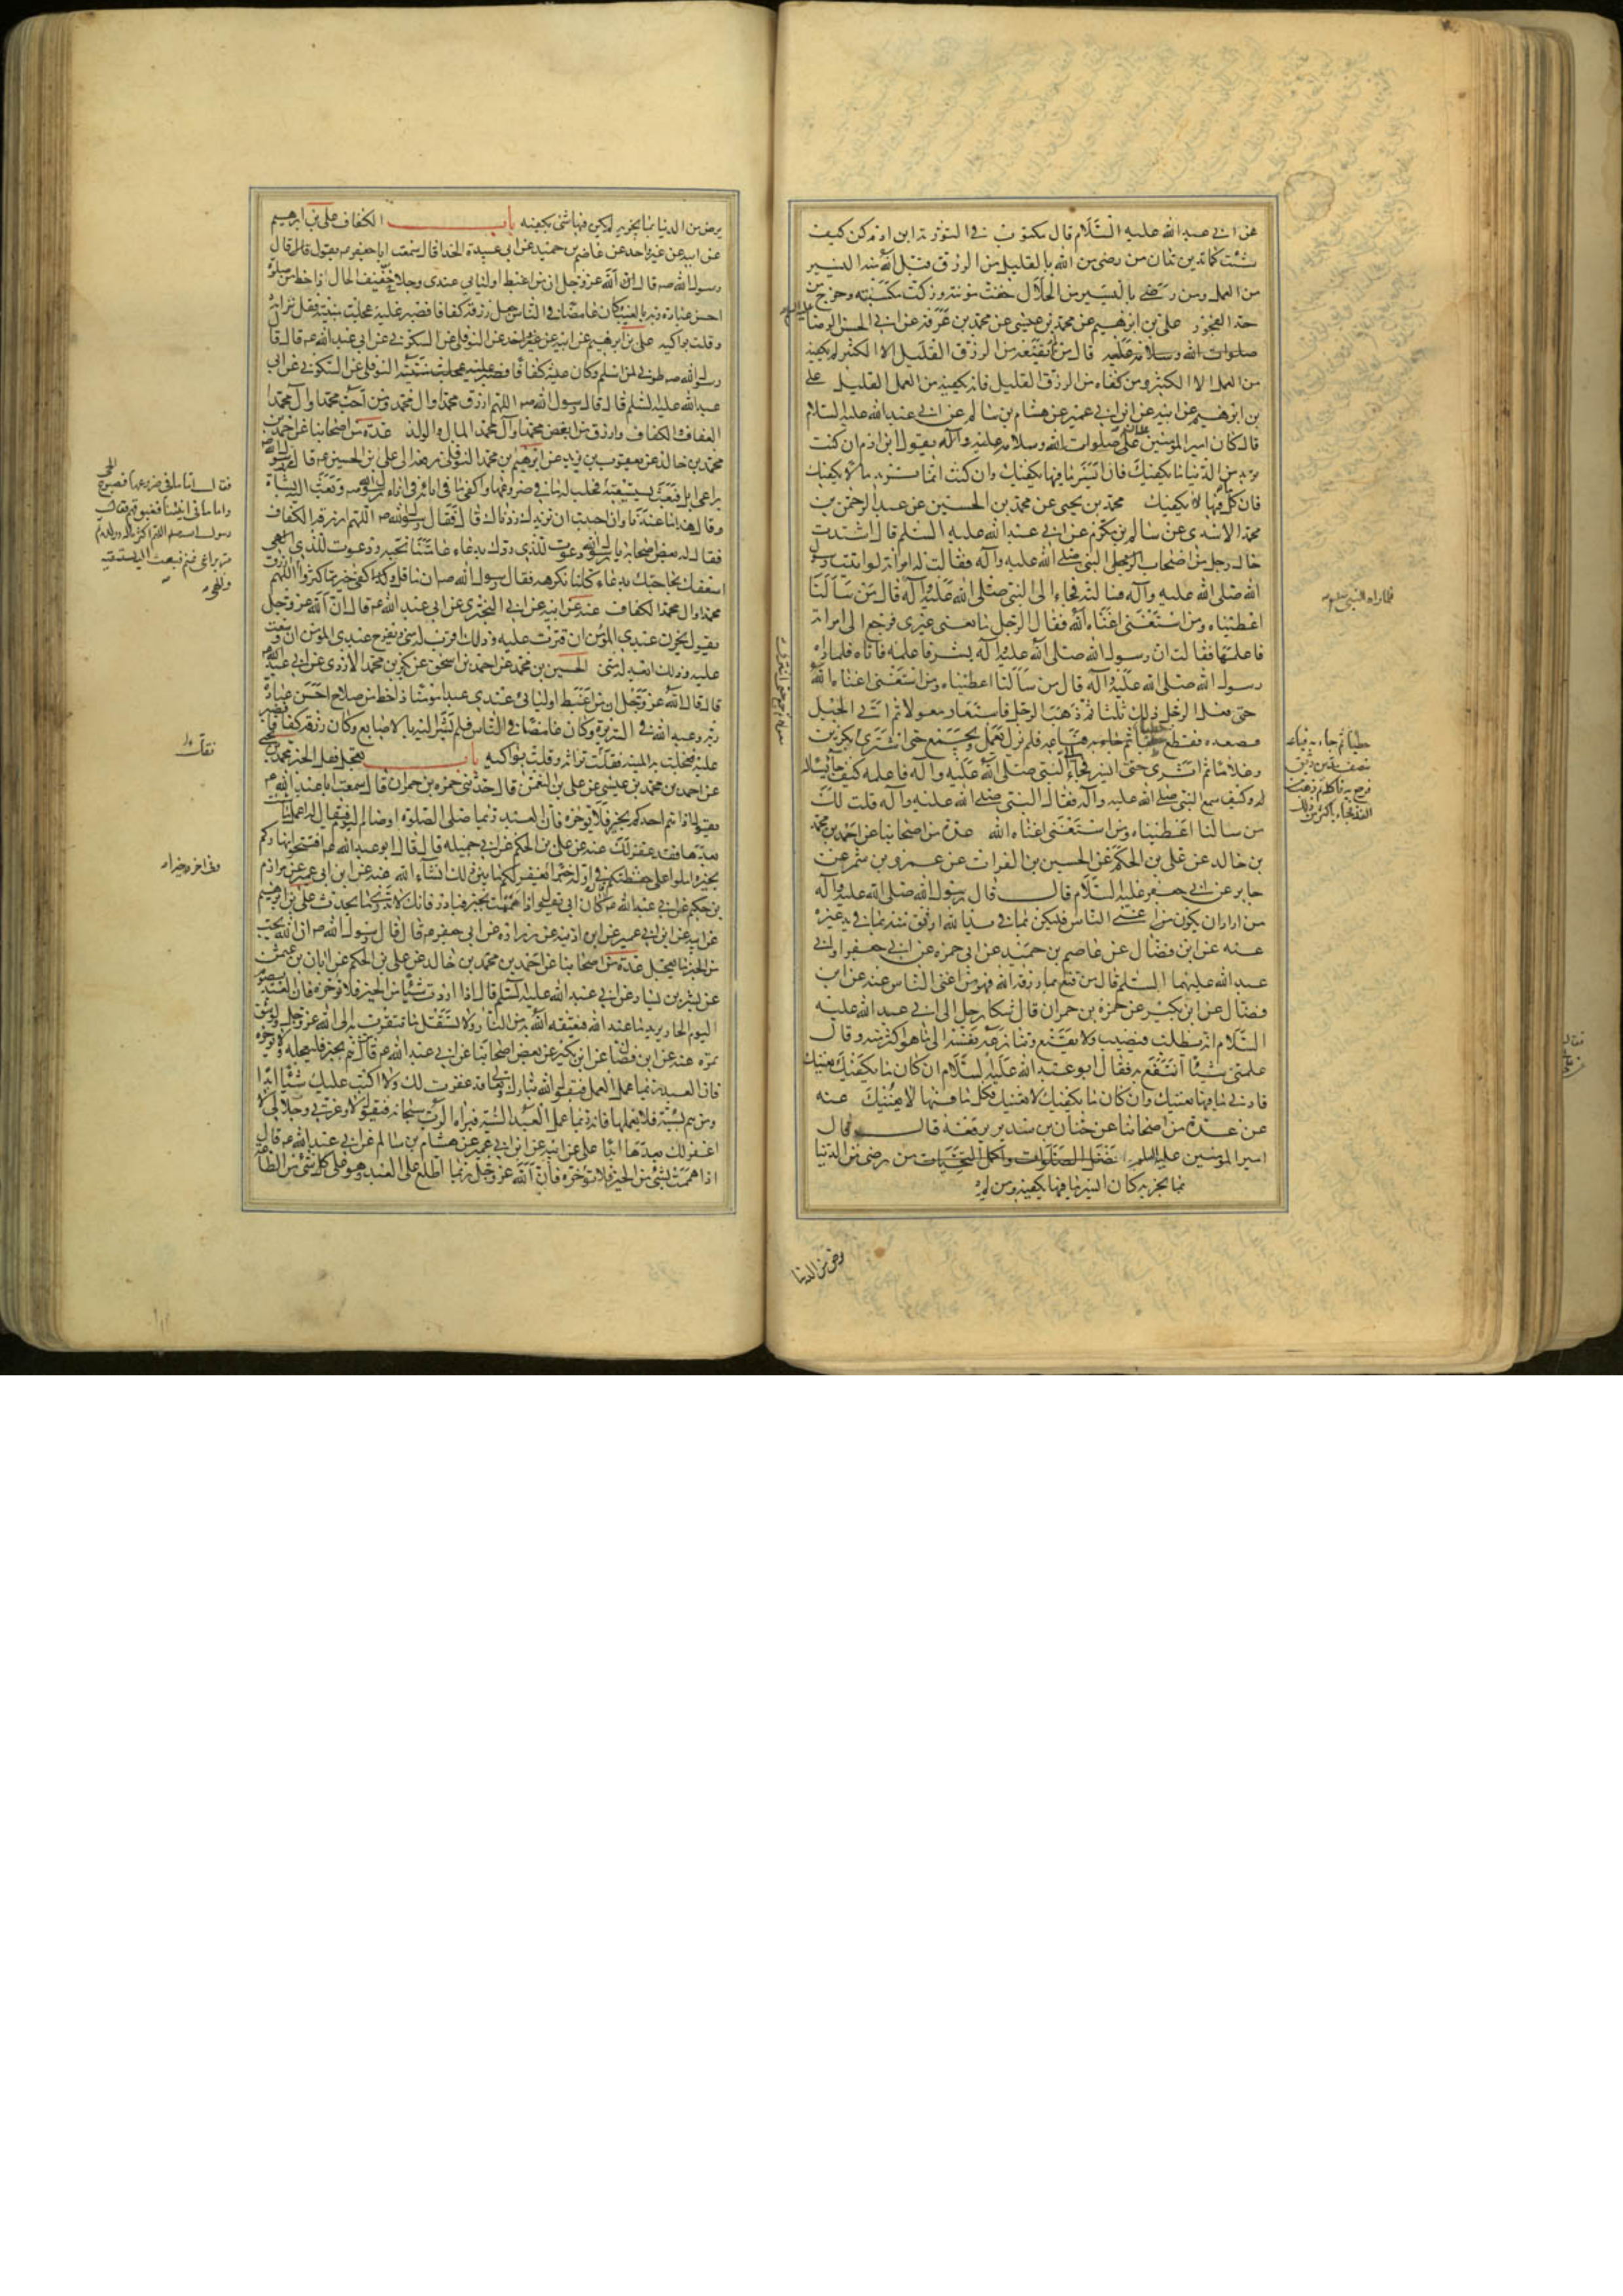 عن ابي عبد الله عليه السلام قال مكتوب في التورية ابن ادم كن كيف
شئت كما تدين تدان من رضي من الله بالقليل من الرزق قبل الله منه اليسير
من العمل ومن رضي باليسير من الحلال خفت مؤنته وزكت مكسبته وخرج من
حد الفجور علي بن ابرهيم عن محمد بن عيسى عن محمد بن عرفة عن ابي الحسن الرضا
صلوات الله وسلامه عليه قال من لم يقنعه من الرزق القليل الا الكثير لم يكفه
من العمل الا الكثير ومن كفاه من الرزق القليل فانه يكفيه من العمل القليل علي
بن ابرهيم عن ابيه عن ابن ابي عمير عن هشام بن سالم عن ابي عبد الله عليه السلام
قال كان امير المؤمنين صلوات الله وسلامه عليه وآله يقول ابن ادم ان كنت
تريد من الدنيا ما يكفيك فان ايسر ما فيها يكفيك وان كنت انما تريد ما لا يكفيك
فان كل ما فيها لا يكفيك محمد بن يحيى عن محمد بن الحسين عن عبد الرحمن بن
محمد الاسدي عن سالم بن مكرم عن ابي عبد الله عليه السلم قال اشتدت
حال رجل من اصحاب النبي صلى الله عليه وآله فقالت له امراته لو اتيت رسول
الله صلى الله عليه وآله فسالته فجاء الى النبي صلى الله عليه وآله قال من سألنا
اعطيناه ومن استغنى اغناه الله فقال الرجل ما يعني غيري فرجع الى امراته
فاعلمها فقالت ان رسول الله صلى الله عليه وآله بشر فاعلمه فاتاه فلما راه
رسول الله صلى الله عليه وآله قال من سألنا اعطيناه ومن استغنى اغناه الله
حتى فعل الرجل ذلك ثلثا ثم ذهب الرجل فاستعار معولا ثم اتى الجبل
فصعده فقطع حطبا ثم جاء به فباعه فلم يزل يعمل ويجمع حتى اشترى بكرين
وغلاما ثم اثرى حتى ايسر فجاء الى النبي صلى الله عليه وآله فاعلمه كيف جاء يسأله
وكيف سمع النبي صلى الله عليه وآله فقال النبي صلى الله عليه وآله قلت لك
من سالنا اعطيناه ومن استغنى اغناه الله عدة من اصحابنا عن احمد بن محمد
بن خالد عن علي بن الحكم عن الحسين بن الفرات عن عمرو بن شمر عن
جابر عن ابي جعفر عليه السلام قال قال رسول الله صلى الله عليه وآله
من اراد ان يكون من اغنى الناس فليكن بما في يد الله اوثق منه بما في يد غيره
عنه عن ابن فضال عن عاصم بن حميد عن ابي حمزة عن ابي جعفر او ابي
عبد الله عليهما السلم قال من قنع بما رزقه الله فهو من اغنى الناس عنه عن ابن
فضال عن ابن بكير عن حمزة بن حمران قال شكا رجل الى ابي عبد الله عليه
السلام انه يطلب فيصيب ولا يقنع وتنازعه نفسه الى ما هو اكثر منه وقال
علمني شيئا انتفع به فقال ابو عبد الله عليه السلام ان كان ما يكفيك يغنيك
فادنى ما فيها يغنيك وان كان ما يكفيك لا يغنيك فكل ما فيها لا يغنيك عنه
عن عدة من اصحابنا عن حنان بن سدير يرفعه قال قال
امير المؤمنين عليه السلم من رضي من الدنيا
بما يجزيه كان ايسر ما فيها يكفيه ومن لم
يرض من الدنيا
فلما راه النبي
يرض من الدنيا بما يجزيه لم يكن فيها شيء يكفيه باب الكفاف علي بن ابرهيم
عن ابيه عن غير واحد عن عاصم بن حميد عن ابي عبيدة الحذا قال سمعت ابا جعفر يقول قال
رسول الله ص قال الله عز وجل ان من اغبط اوليائي عندي رجلا خفيف الحال ذا حظ من صلوة
احسن عبادة ربه بالغيب وكان غامضا في الناس جعل رزقه كفافا فصبر عليه عجلت منيته فقل تراثه
وقلت بواكيه علي بن ابرهيم عن ابيه عن النوفلي عن السكوني عن ابي عبد الله ع قال قال
رسول الله ص طوبى لمن اسلم وكان عيشه كفافا النوفلي عن السكوني عن ابي
عبد الله عليه السلم قال قال رسول الله ص اللهم ارزق محمدا وال محمد ومن احب محمدا وآل محمد
العفاف والكفاف وارزق من ابغض محمدا وآل محمد المال والولد عدة من اصحابنا عن احمد بن
محمد بن خالد عن يعقوب بن يزيد عن ابرهيم بن محمد النوفلي رفعه الى علي بن الحسين ع قال مر رسول الله
براعي ابل فبعث يستسقيه فحلب له ما في ضروعها واكفى ما في انائه في اناء رسول الله ص وبعث اليه بشاة
وقال هذا ما عندنا وان احببت ان نزيدك زدناك قال فقال رسول الله ص اللهم ارزقه الكفاف
فقال له بعض اصحابه يا رسول الله دعوت للذي ردك بدعاء عامتنا نحبه ودعوت للذي
اسعفك بحاجتك بدعاء كلنا نكرهه فقال رسول الله ص ان ما قل وكفى خير مما كثر والهى اللهم ارزق
محمدا وال محمد الكفاف عنه عن ابيه عن ابي البختري عن ابي عبد الله ع قال ان الله عز وجل
يقول يحزن عبدي المؤمن ان قترت عليه وذلك اقرب له مني ويفرح عبدي المؤمن ان وسعت
عليه وذلك ابعد له مني الحسين بن محمد عن احمد بن اسحق عن بكر بن محمد الازدي عن ابي عبد الله
قال قال الله عز وجل ان من اغبط اوليائي عندي عبدا مؤمنا ذا حظ من صلاح احسن عبادة
ربه وعبد الله في السريرة وكان غامضا في الناس فلم يشر اليه بالاصابع وكان رزقه كفافا فصبر
عليه فعجلت به المنية فقل تراثه وقلت بواكيه باب تعجيل فعل الخير محمد بن يحيى
عن احمد بن محمد بن عيسى عن علي بن النعمن قال حدثني حمزة بن حمران قال سمعت ابا عبد الله ع
يقول اذا هم احدكم بخير فلا يؤخره فان العبد ربما صلى الصلوة او صام اليوم فيقال له اعمل ما شئت
بعدها فقد غفر لك عنه عن علي بن الحكم عن ابي جميلة قال قال ابو عبد الله افتتحوا نهاركم
بخير واملوا على حفظتكم في اوله خيرا يغفر لكم ما بين ذلك انشاء الله عنه عن ابن ابي عمير عن مرازم
بن حكيم عن ابي عبد الله ع كان ابي يقول اذا هممت بخير فبادر فانك لا تدري ما يحدث علي بن ابرهيم
عن ابيه عن ابن ابي عمير عن ابن اذينة عن زرارة عن ابي جعفر ع قال قال رسول الله ص ان الله يحب
من الخير ما يعجل عدة من اصحابنا عن احمد بن محمد بن خالد عن علي بن الحكم عن ابان بن عثمان
عن بشر بن يسار عن ابي عبد الله عليه السلم قال اذا اردت شيئا من الخير فلا تؤخره فان العبد يصوم
اليوم الحار يريد ما عند الله فيعتقه الله به من النار ولا تستقل ما يتقرب به الى الله عز وجل ولو شق
تمرة عنه عن ابن فضال عن ابن بكير عن بعض اصحابنا عن ابي عبد الله ع قال من هم بخير فليعجله ولا يؤخره
فان العبد ربما عمل العمل فيقول الله تبارك وتعالى قد غفرت لك ولا اكتب عليك شيئا ابدا
ومن هم بسيئة فلا يعملها فانه ربما عمل العبد السيئة فيراه الرب سبحانه فيقول لا وعزتي وجلالي لا
اغفر لك بعدها ابدا علي عن ابيه عن ابن ابي عمير عن هشام بن سالم عن ابي عبد الله ع قال
اذا هممت بشيء من الخير فلا تؤخره فان الله عز وجل ربما اطلع على العبد وهو على شيء من الطاعة